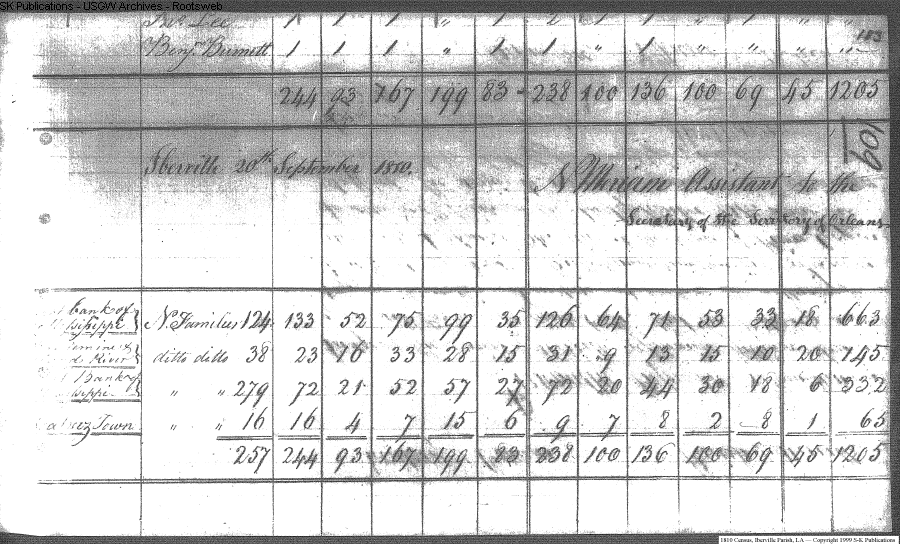 SK Publications - USGW Archives - Rootsweb
Lee 1 1 1 " 1 2 1 1 " " "
Benjn Burnett 1 1 1 " 1 1 " 1 " " "
183
244 93 167 199 83 238 100 136 100 69 45 1205
109
Iberville 20th September 1810.
N Meriam Assistant to the
Secretary of the Territory of Orleans
bank of
sissippe } N. Families 124 133 52 75 99 35 126 64 71 53 33 18 663
River } ditto ditto 38 23 16 33 28 15 31 9 13 15 10 20 145
Bank of
sippe } " " 279 72 21 52 57 27 72 20 44 30 18 6 332
Town " " 16 16 4 7 15 6 9 7 8 2 8 1 65
257 244 93 167 199 83 238 100 136 100 69 45 1205
1810 Census, Iberville Parish, LA — Copyright 1999 S-K Publications